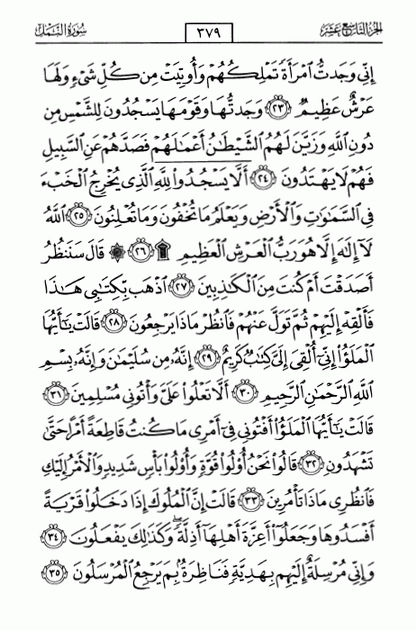 الجزء التاسع عشر ٣٧٩ سورة النمل
إِنِّي وَجَدتُّ ٱمْرَأَةً تَمْلِكُهُمْ وَأُوتِيَتْ مِن كُلِّ شَيْءٍ وَلَهَا
عَرْشٌ عَظِيمٌ ٢٣ وَجَدتُّهَا وَقَوْمَهَا يَسْجُدُونَ لِلشَّمْسِ مِن
دُونِ ٱللَّهِ وَزَيَّنَ لَهُمُ ٱلشَّيْطَٰنُ أَعْمَٰلَهُمْ فَصَدَّهُمْ عَنِ ٱلسَّبِيلِ
فَهُمْ لَا يَهْتَدُونَ ٢٤ أَلَّا يَسْجُدُوا۟ لِلَّهِ ٱلَّذِي يُخْرِجُ ٱلْخَبْءَ
فِي ٱلسَّمَٰوَٰتِ وَٱلْأَرْضِ وَيَعْلَمُ مَا تُخْفُونَ وَمَا تُعْلِنُونَ ٢٥ ٱللَّهُ
لَآ إِلَٰهَ إِلَّا هُوَ رَبُّ ٱلْعَرْشِ ٱلْعَظِيمِ ۩ ٢٦ ۞ قَالَ سَنَنظُرُ
أَصَدَقْتَ أَمْ كُنتَ مِنَ ٱلْكَٰذِبِينَ ٢٧ ٱذْهَب بِّكِتَٰبِي هَٰذَا
فَأَلْقِهْ إِلَيْهِمْ ثُمَّ تَوَلَّ عَنْهُمْ فَٱنظُرْ مَاذَا يَرْجِعُونَ ٢٨ قَالَتْ يَٰٓأَيُّهَا
ٱلْمَلَؤُا۟ إِنِّيٓ أُلْقِيَ إِلَيَّ كِتَٰبٌ كَرِيمٌ ٢٩ إِنَّهُۥ مِن سُلَيْمَٰنَ وَإِنَّهُۥ بِسْمِ
ٱللَّهِ ٱلرَّحْمَٰنِ ٱلرَّحِيمِ ٣٠ أَلَّا تَعْلُوا۟ عَلَيَّ وَأْتُونِي مُسْلِمِينَ ٣١
قَالَتْ يَٰٓأَيُّهَا ٱلْمَلَؤُا۟ أَفْتُونِي فِيٓ أَمْرِي مَا كُنتُ قَاطِعَةً أَمْرًا حَتَّىٰ
تَشْهَدُونِ ٣٢ قَالُوا۟ نَحْنُ أُو۟لُوا۟ قُوَّةٍ وَأُو۟لُوا۟ بَأْسٍ شَدِيدٍ وَٱلْأَمْرُ إِلَيْكِ
فَٱنظُرِي مَاذَا تَأْمُرِينَ ٣٣ قَالَتْ إِنَّ ٱلْمُلُوكَ إِذَا دَخَلُوا۟ قَرْيَةً
أَفْسَدُوهَا وَجَعَلُوٓا۟ أَعِزَّةَ أَهْلِهَآ أَذِلَّةً ۖ وَكَذَٰلِكَ يَفْعَلُونَ ٣٤
وَإِنِّي مُرْسِلَةٌ إِلَيْهِم بِهَدِيَّةٍ فَنَاظِرَةٌۢ بِمَ يَرْجِعُ ٱلْمُرْسَلُونَ ٣٥